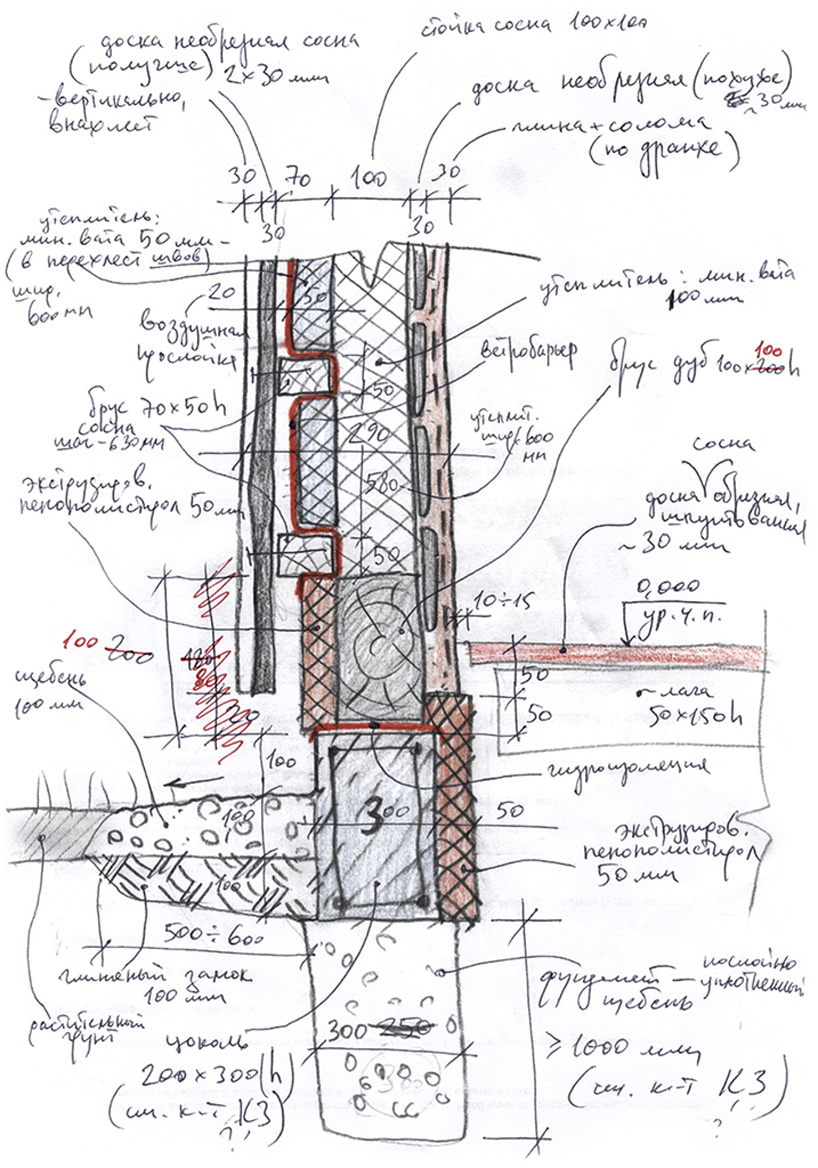 доска необрезная сосна
(получше) 2х30 мм
-вертикально,
внахлест
стойка сосна 100х100
доска необрезная (похуже)
~30 мм
глина+солома
(по дранке)
30
70
100
30
30
30
утеплитель:
мин. вата 50 мм-
(в перехлест швов)
шир.
600мм
20
50
воздушная
прослойка
утеплитель: мин. вата
100 мм
ветробарьер
брус дуб 100х200h
100
брус 70х50h
сосна
шаг-630мм
50
290
580
50
утеплит.
шир. 600
мм
экструдиров.
пенополистирол 50мм
сосна
доска обрезная,
шпунтованная
~30 мм
10÷15
0,000
ур.ч.п.
100 200
50
50
~лага
50х150h
щебень
100 мм
100
гидроизоляция
100
300
50
экструдиров.
пенополистирол
50 мм
100
500÷600
глиняный замок
100 мм
растительный
грунт
цоколь
200х300(h)
(см. к-т КЗ)
?
фундамент — послойно
уплотненный
щебень
300 250
≥1000 мм
(см. к-т КЗ)
?